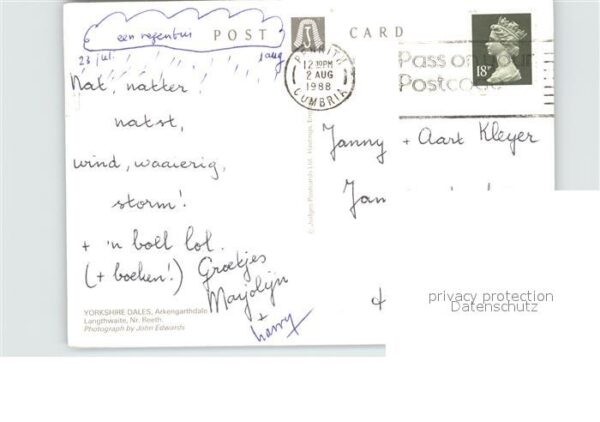 een regenbui
POST CARD
23 jul.
1 aug
PENRITH
12 30PM
2 AUG
1988
CUMBRIA
Pass on your
Postcode
18P
Nat, natter
natst,
wind, waaierig,
storm!
+ 'n boel lol.
(+ boeken!)
Groetjes
Marjolijn
+
harry
Janny + Aart Kleyer
Jan
© Judges Postcards Ltd. Hastings, Eng
YORKSHIRE DALES, Arkengarthdale
Langthwaite, Nr. Reeth.
Photograph by John Edwards
privacy protection
Datenschutz